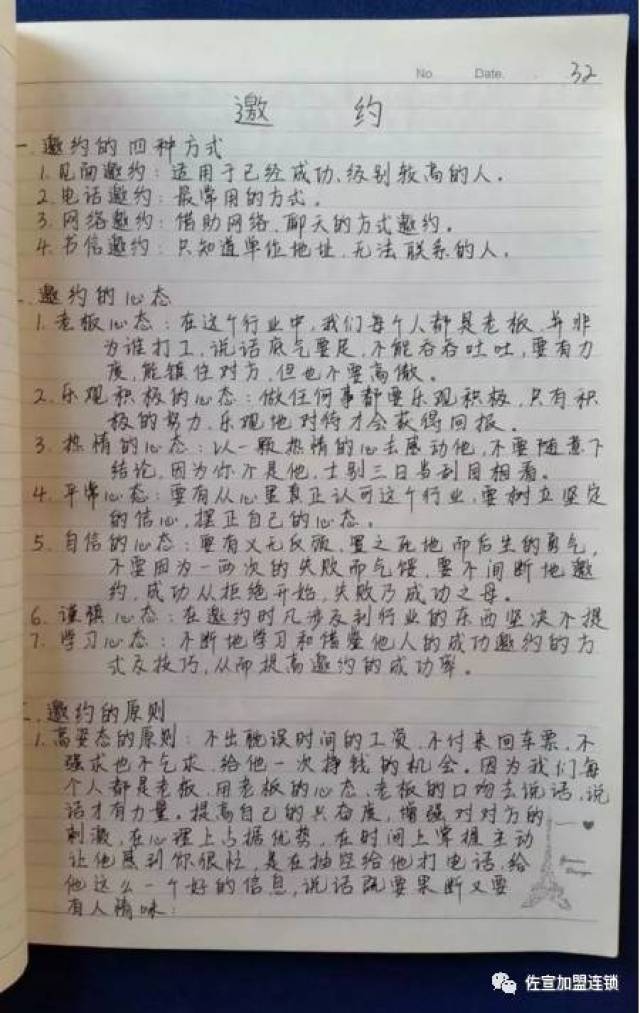 No. Date. 32
邀 约
一.邀约的四种方式
1.见面邀约：适用于已经成功、级别较高的人。
2.电话邀约：最常用的方式。
3.网络邀约：借助网络、聊天的方式邀约。
4.书信邀约：只知道单位地址、无法联系的人。
二.邀约的心态
1.老板心态：在这个行业中，我们每个人都是老板，并非
为谁打工，说话底气要足，不能吞吞吐吐，要有力
度，能镇住对方，但也不要高傲。
2.乐观积极的心态：做任何事都要乐观积极，只有积
极的努力、乐观地对待才会获得回报。
3.热情的心态：以一颗热情的心去感动他，不要随意下
结论，因为你不是他，士别三日当刮目相看。
4.平常心态：要有从心里真正认可这个行业，要树立坚定
的信心，摆正自己的心态。
5.自信的心态：要有义无反顾，置之死地而后生的勇气，
不要因为一两次的失败而气馁，要不间断地邀
约，成功从拒绝开始，失败乃成功之母。
6.谨慎心态：在邀约时凡涉及到行业的东西坚决不提
7.学习心态：不断地学习和借鉴他人的成功邀约的方
式及技巧，从而提高邀约的成功率。
三.邀约的原则
1.高姿态的原则：不出耽误时间的工资，不付来回车票，不
强求也不乞求，给他一次挣钱的机会。因为我们每
个人都是老板，用老板的心态、老板的口吻去说话，说
话才有力量。提高自己的兴奋度，增强对对方的
刺激，在心理上占据优势，在时间上掌握主动
让他感到你很忙，是在抽空给他打电话，给
他这么一个好的信息，说话既要果断又要
有人情味：
佐宣加盟连锁